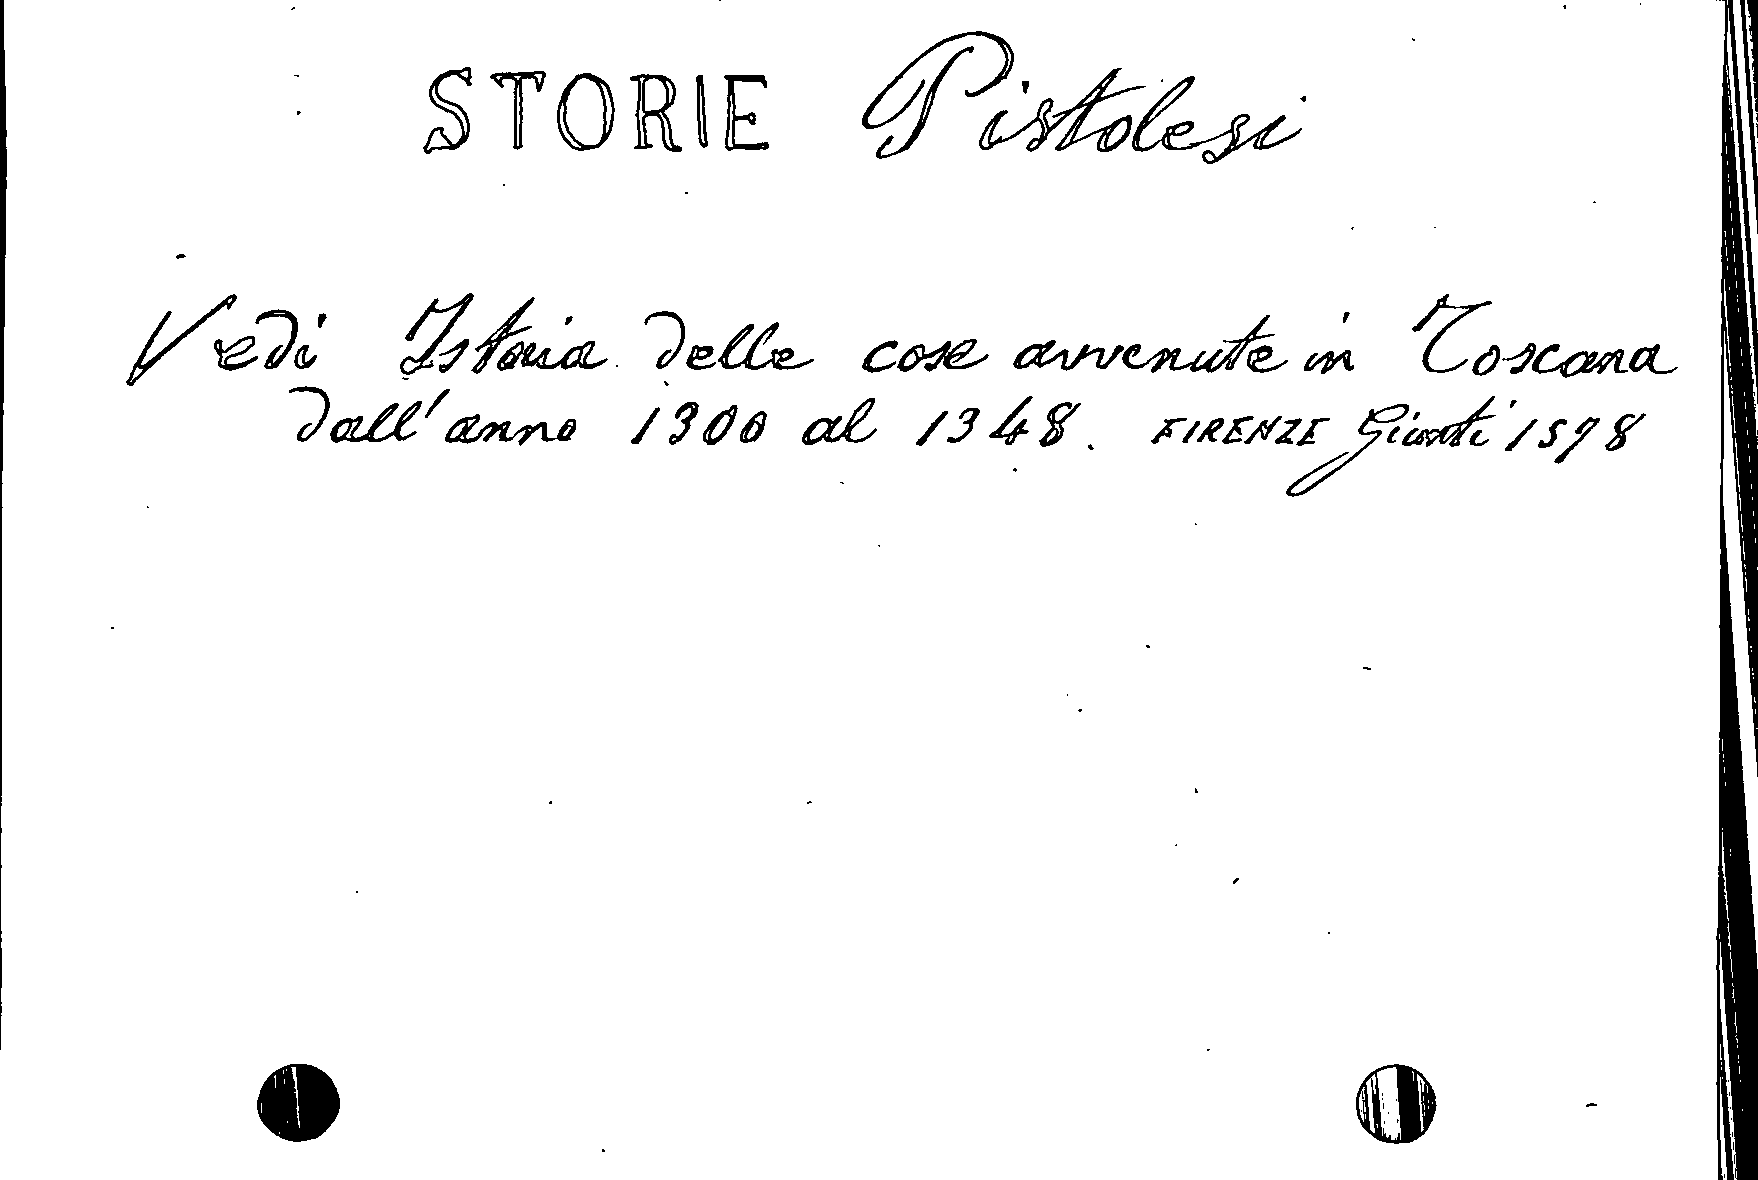 STORIE Pistolesi
Vedi Istoria delle cose avvenute in Toscana
dall'anno 1300 al 1348. FIRENZE Giunti 1578